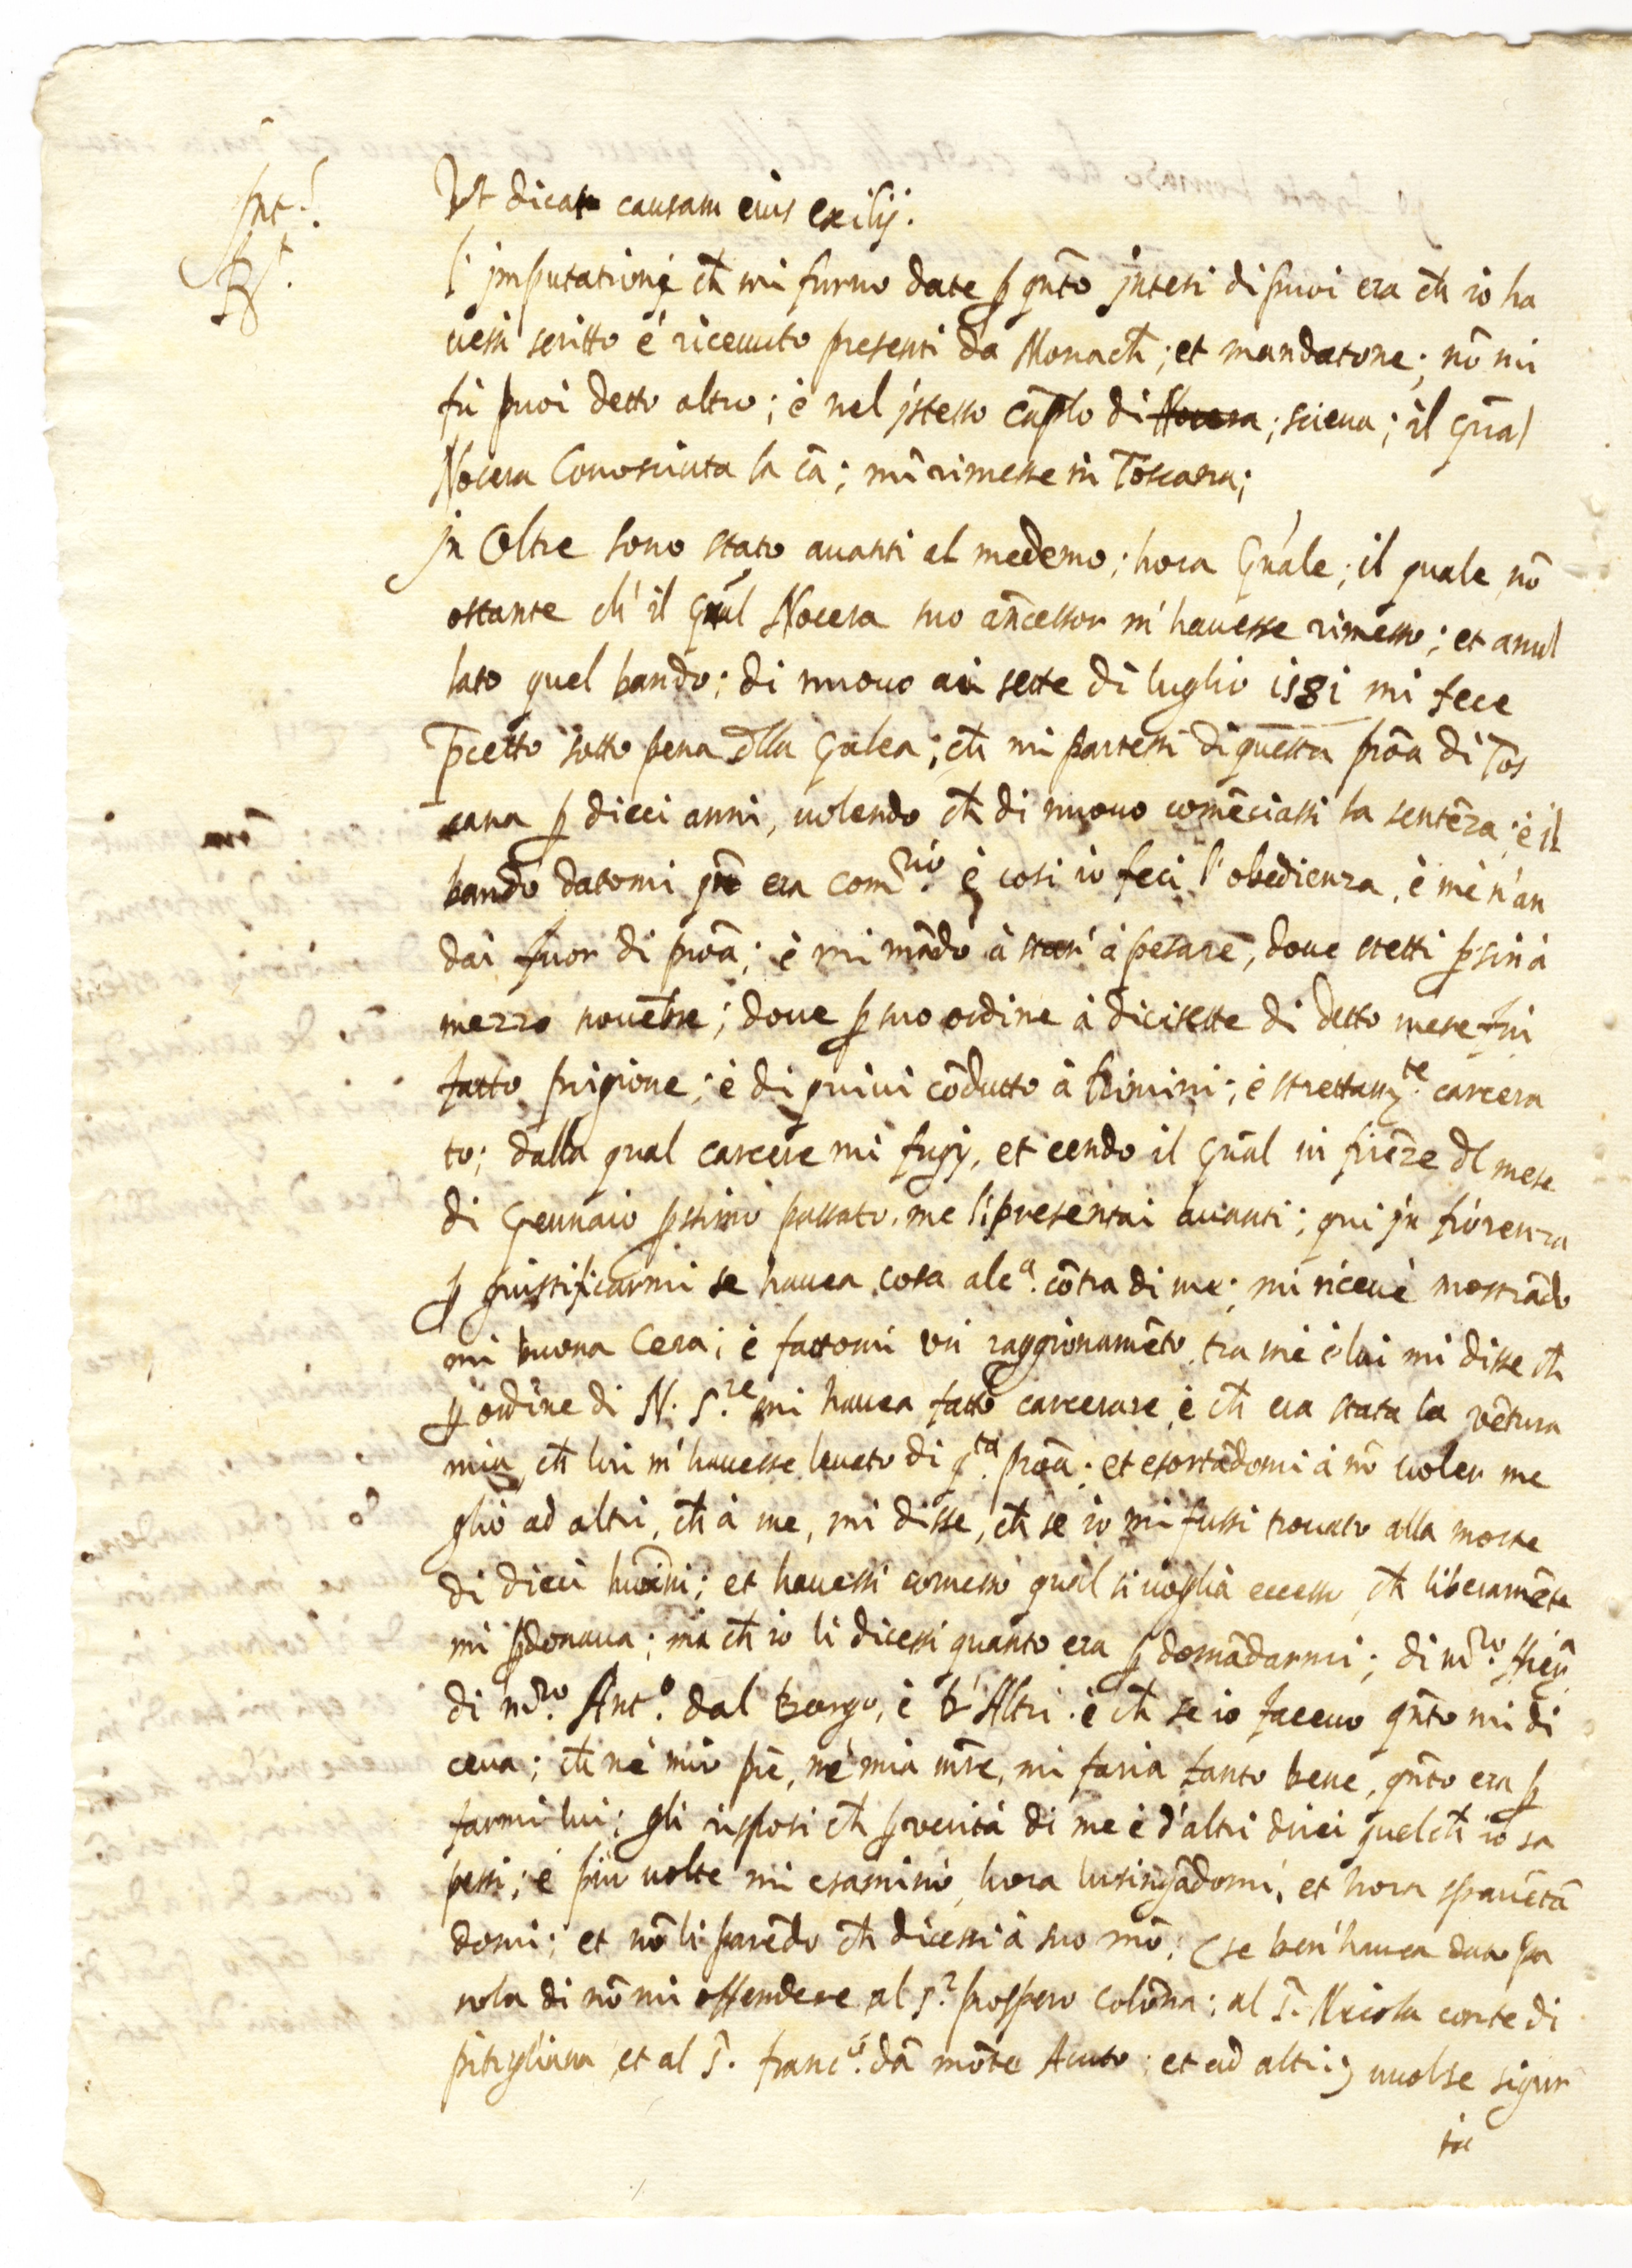 Int.
Rt.
Ut dicat causam eius exilij.
l' jmputationi ch̃ mi furno date ꝑ qñto jntesi di puoi era ch̃ io ha
uessi scritto é riceuuto presenti da Monach̃; et mandatone; nõ mi
fù puoi detto altro; è nel jstesso cãplo di Nocera; siena; il Gñal
Nocera Conosciuta la cã; mi rimesse in Toscana;
jn Oltre sono stato auanti al medemo; hora Gñale; il quale nõ
ostante ch' il Gñal Nocera suo añcessor m' hauesse rimesso; et anul
lato quel bando; di nuouo ai sette di luglio 1581 mi fece
p̃cetto sotto pena d̃lla Galea; ch̃ mi partessi di questa proã di Tos
cana ꝑ dieci anni, uolendo ch̃ di nuouo comẽciassi la sentẽza; è il
bando datomi era com.rio è cosi io feci l' obedienza, è me n' an
dai fuor di proã; è mi mãdò à star' à pesare, doue stetti ꝑsin à
mezzo nouẽbre; doue ꝑ suo ordine à dicisette di detto mese fui
fatto prigione; è di quiui cõdutto à Rimini; è strettam.te carcera
to; dalla qual carcere mi fugij, et eendo il Gñal in firẽze dl mese
di Gennaio ꝑssimo passato, me li presentai auanti; qui jn fiorenza
ꝑ giustificarmi se hauea cosa alc.a cõtra di me; mi riceuè mostrãdo
mi buona Cera; è fattomi un raggionamẽto tra me è lui mi disse ch̃
ꝑ ordine di N. S.re mi hauea fatto carcerare è ch̃ era stata la vẽtura
mia ch̃ lui m' hauesse leuato di q.ta proã; et esortãdomi à nõ uoler me
glio ad altri, ch̃ à me, mi disse, ch̃ se io mi fussi trouato alla morte
di dieci huoĩni; et hauessi comesso qual si uoglia eccesso ch̃ liberamẽte
mi ꝑdonaua; ma ch̃ io li dicessi quanto era ꝑ domãdarmi; di m.ro
di m.ro Ant.o dal Borgo, è d' Altri. è ch̃ se io faceuo qñto mi di
ceua; ch̃ nè mio prẽ, nè mia mr̃e, mi faria tanto bene, qñto era ꝑ
farmi lui; gli risposi ch̃ ꝑ verità di me è d' altri direi quelch̃ io sa
pessi; è piu uolte mi esaminò, hora lusingãdomi, et hora spauẽtã
domi; et nõ li parẽdo ch̃ dicessi à suo mõ; (se ben' hauea dato pa
rola di nõ mi offendere al S.r prospero colõna; al S. Nicola conte di
pitigliana et al S. franc.o dã mõte Acuto; et ad altri;) uuolse sigur
tà